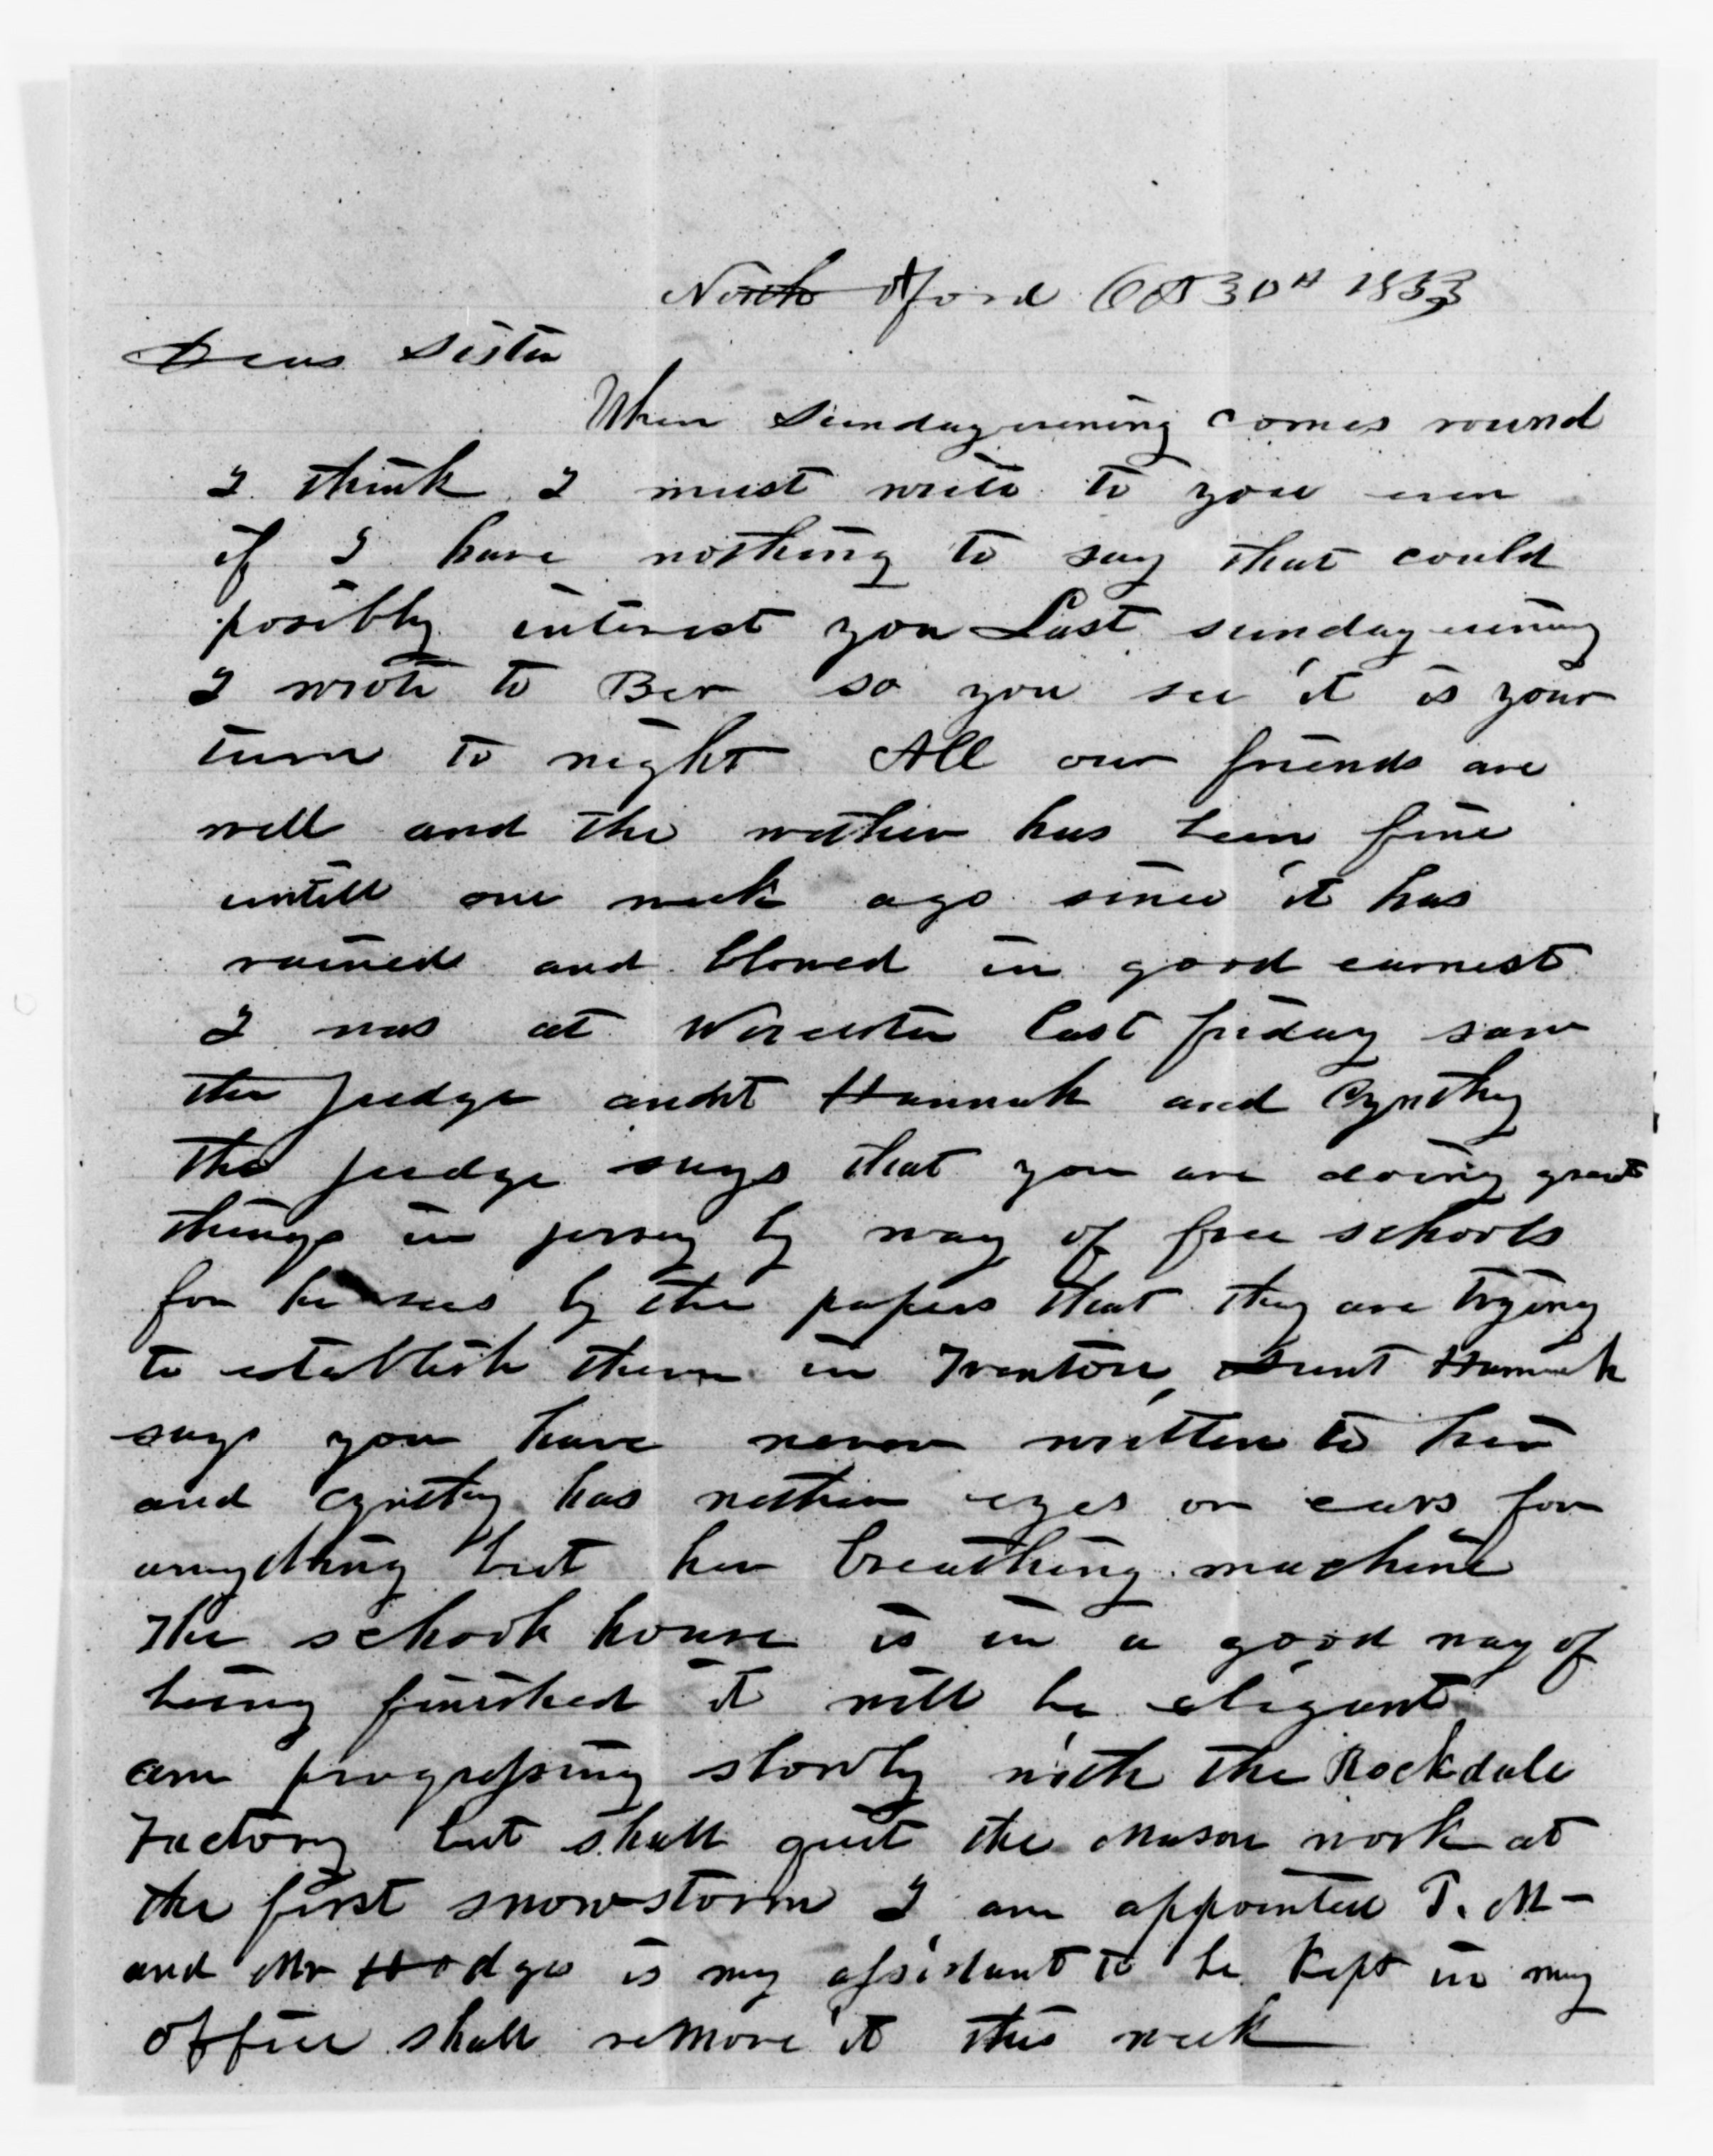 North Oxford Oct 30th 1853
Dear Sister
When Sunday evening comes round
I think I must write to you even
if I have nothing to say that could
posibly interest you Last sunday evening
I wrote to Ber so you see it is your
turn to night All our friends are
well and the wether has been fine
untill one week ago since it has
rained and blowed in good earnest
I was at Worcester last friday saw
the Judge aunt Hannah and Cynthy
the judge says that you are doing great
things in jersey by way of free schools
for he sees by the papers that they are trying
to establish them in Trenton, Aunt Hannah
says you have never written to her
and Cynthy has nethier eyes or ears for
anything but her breathing machine
The school house is in a good way of
being finished it will be elegant
am progressing slowly with the Rockdale
Factory but shall quit the Mason work at
the first snow storm I am appointed P. M -
and Mr Hodges is my assistant to be kept in my
office shall remove it this week